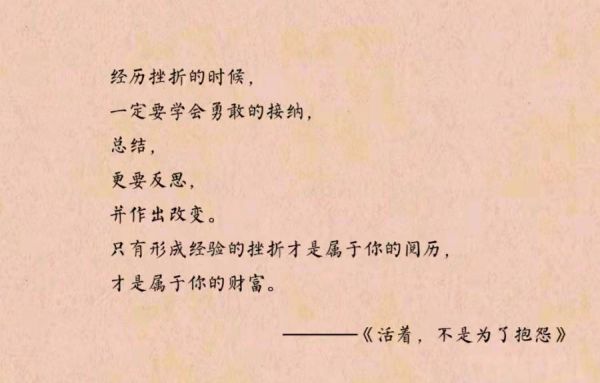 经历挫折的时候，
一定要学会勇敢的接纳，
总结，
更要反思，
并作出改变。
只有形成经验的挫折才是属于你的阅历，
才是属于你的财富。
————《活着，不是为了抱怨》